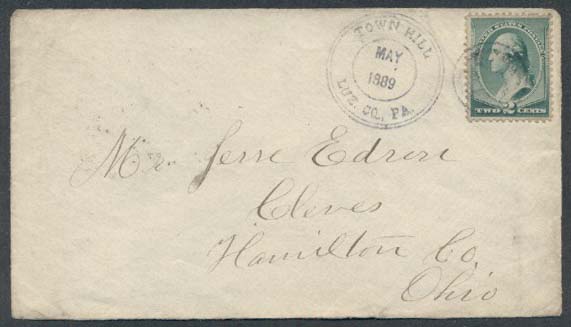 TOWN HILL
MAY
1889
LUZ. CO., PA.
UNITED STATES POSTAGE
TWO 2 CENTS
Mr. Jesse Edson
Cleves
Hamilton Co.
Ohio